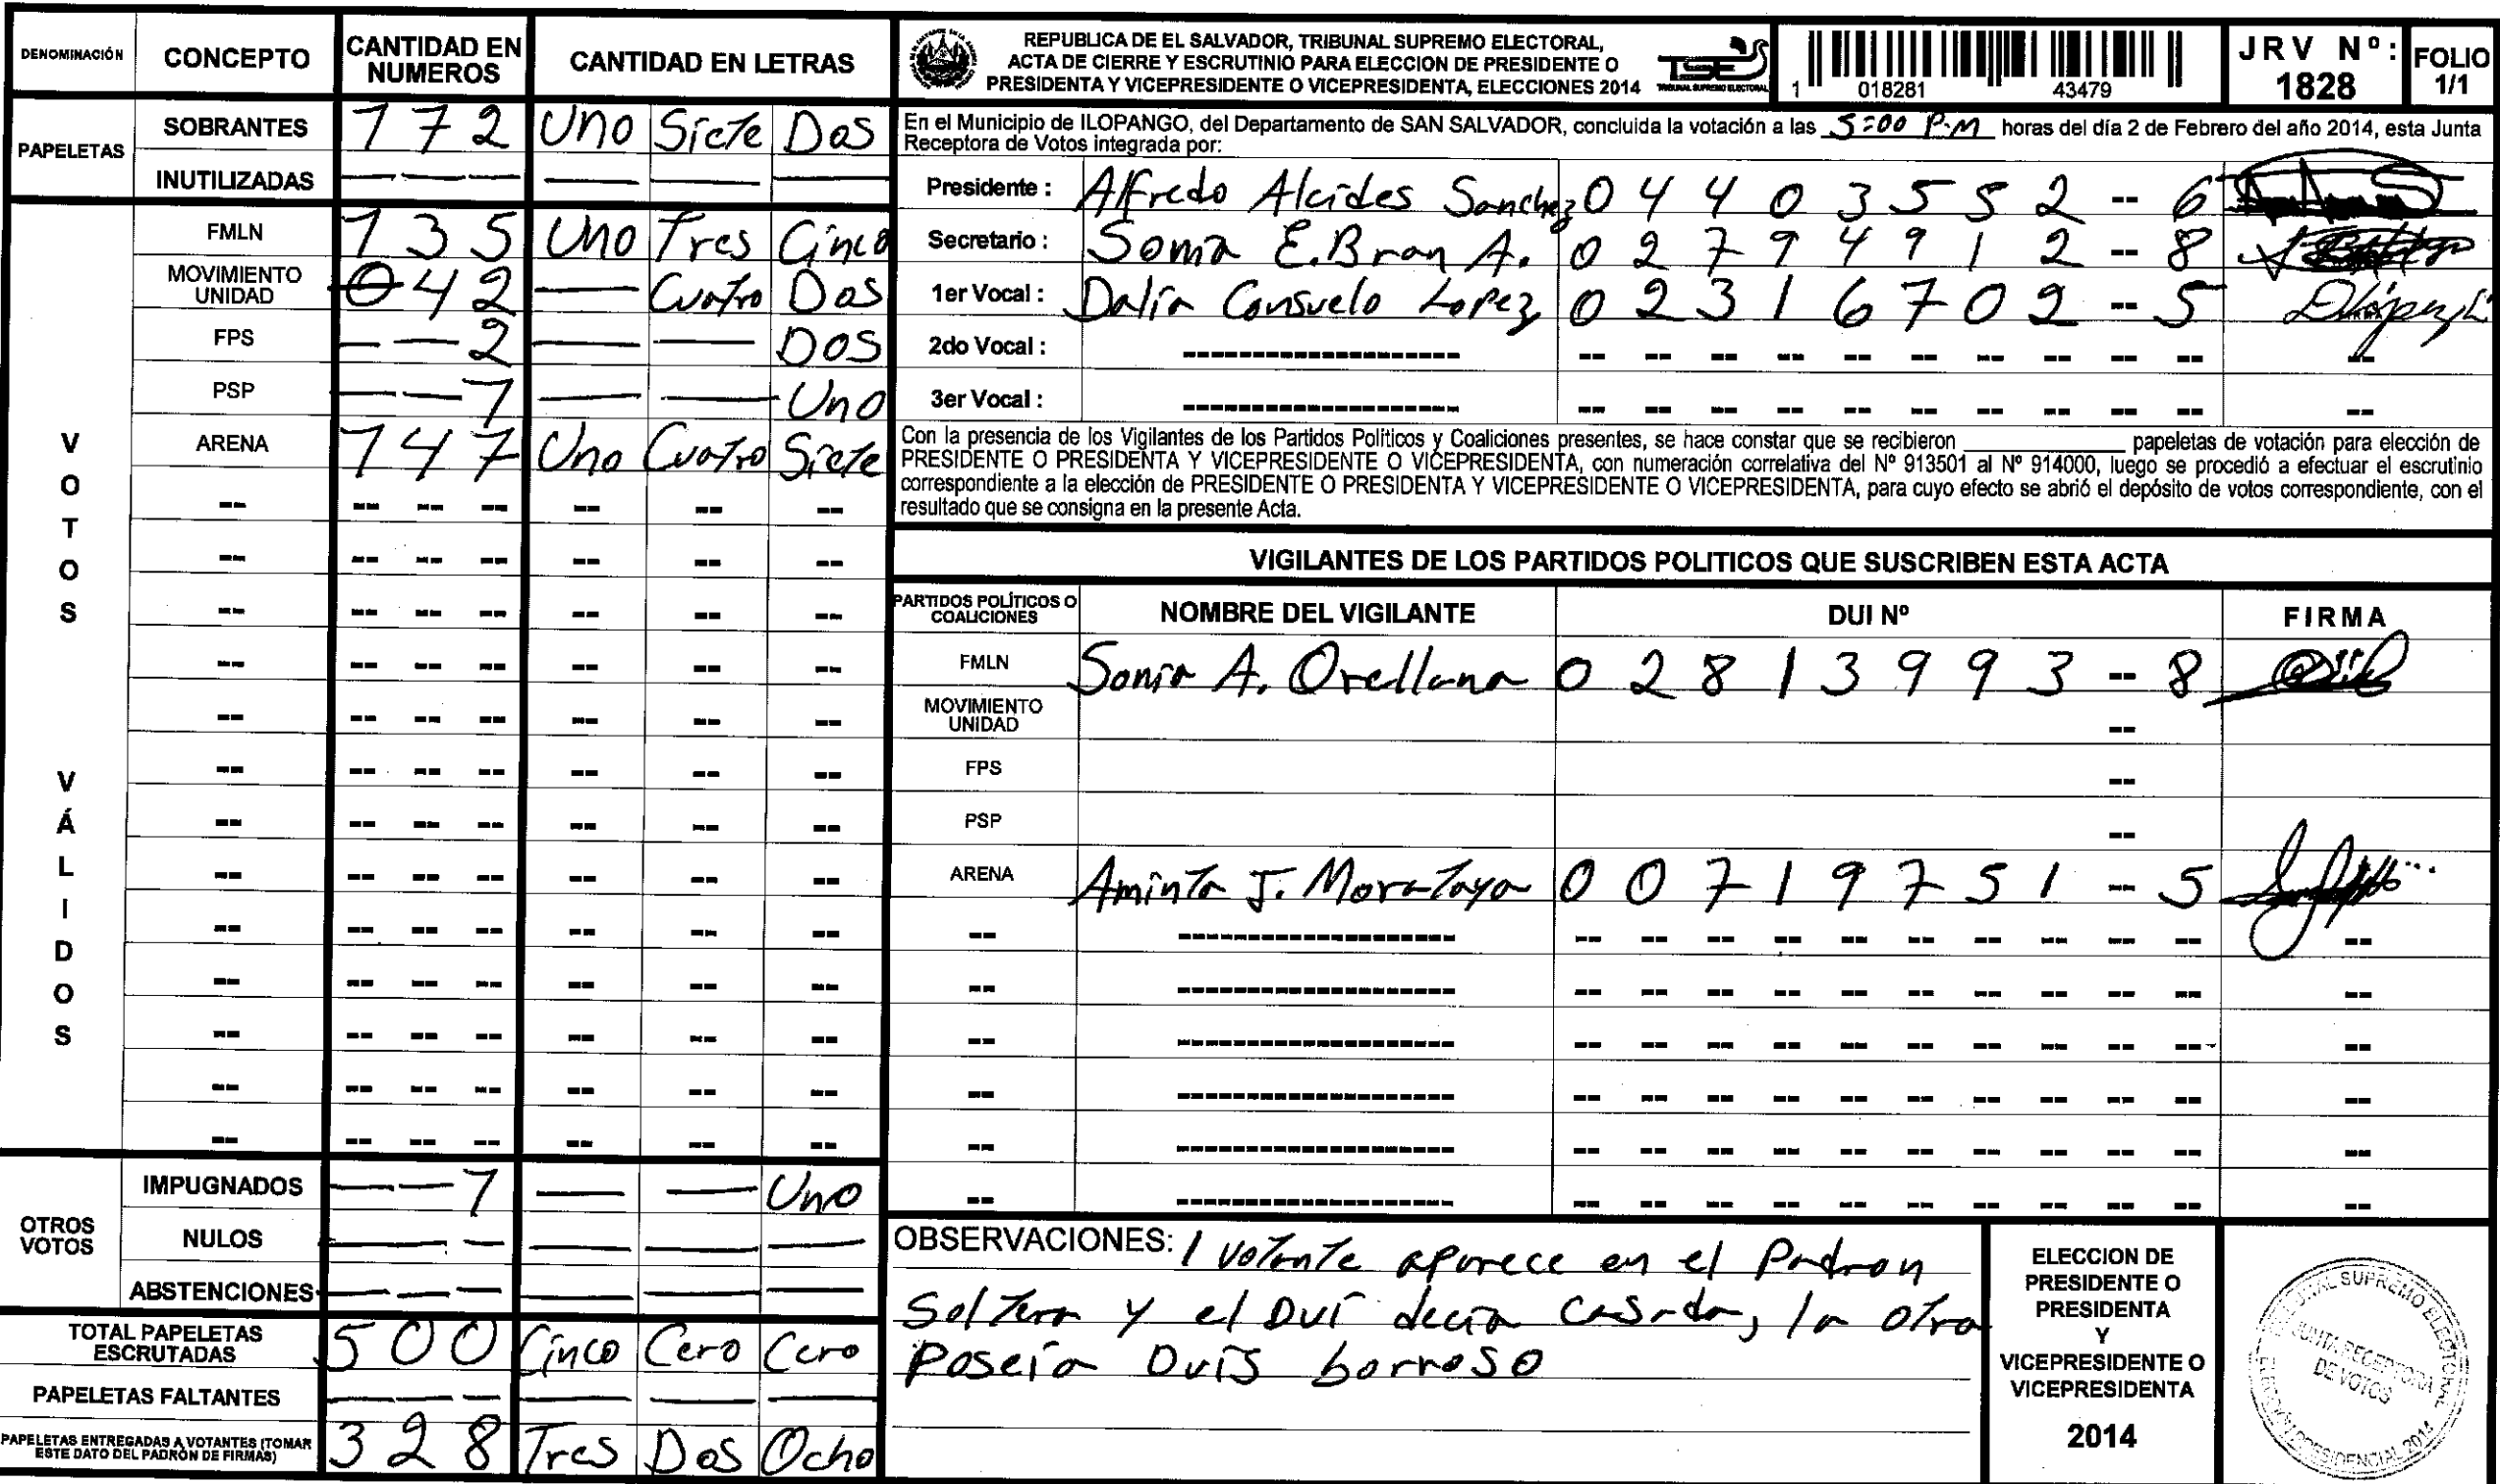 DENOMINACIÓN CONCEPTO CANTIDAD EN NUMEROS CANTIDAD EN LETRAS
PAPELETAS
SOBRANTES 172 Uno Siete Dos
INUTILIZADAS — — — — — —
VOTOS VÁLIDOS
FMLN 135 Uno Tres Cinco
MOVIMIENTO UNIDAD 042 — Cuatro Dos
FPS — — 2 — — Dos
PSP — — 1 — — Uno
ARENA 147 Uno Cuatro Siete
OTROS VOTOS
IMPUGNADOS — — 1 — — Uno
NULOS — — — — — —
ABSTENCIONES — — — — — —
TOTAL PAPELETAS ESCRUTADAS 500 Cinco Cero Cero
PAPELETAS FALTANTES — — — — — —
PAPELETAS ENTREGADAS A VOTANTES (TOMAR ESTE DATO DEL PADRÓN DE FIRMAS) 328 Tres Dos Ocho
REPUBLICA DE EL SALVADOR, TRIBUNAL SUPREMO ELECTORAL,
ACTA DE CIERRE Y ESCRUTINIO PARA ELECCION DE PRESIDENTE O
PRESIDENTA Y VICEPRESIDENTE O VICEPRESIDENTA, ELECCIONES 2014
TSE
TRIBUNAL SUPREMO ELECTORAL
1 018281 43479
JRV Nº: 1828
FOLIO 1/1
En el Municipio de ILOPANGO, del Departamento de SAN SALVADOR, concluida la votación a las 5:00 P.M horas del día 2 de Febrero del año 2014, esta Junta
Receptora de Votos integrada por:
Presidente : Alfredo Alcides Sanchez 04403552--6
Secretario : Sonia E. Bran A. 02794912--8
1er Vocal : Dalia Consuelo Lopez 02316702--5
2do Vocal :
3er Vocal :
Con la presencia de los Vigilantes de los Partidos Políticos y Coaliciones presentes, se hace constar que se recibieron ____________ papeletas de votación para elección de
PRESIDENTE O PRESIDENTA Y VICEPRESIDENTE O VICEPRESIDENTA, con numeración correlativa del Nº 913501 al Nº 914000, luego se procedió a efectuar el escrutinio
correspondiente a la elección de PRESIDENTE O PRESIDENTA Y VICEPRESIDENTE O VICEPRESIDENTA, para cuyo efecto se abrió el depósito de votos correspondiente, con el
resultado que se consigna en la presente Acta.
VIGILANTES DE LOS PARTIDOS POLITICOS QUE SUSCRIBEN ESTA ACTA
PARTIDOS POLÍTICOS O COALICIONES NOMBRE DEL VIGILANTE DUI Nº FIRMA
FMLN Sonia A. Orellana 02813993--8
MOVIMIENTO UNIDAD --
FPS --
PSP --
ARENA Aminta J. Morataya 00719751--5
OBSERVACIONES: 1 votante aparece en el Padron
Soltera y el DUI decia casada, la otra
Poseia Duis borroso
ELECCION DE
PRESIDENTE O
PRESIDENTA
Y
VICEPRESIDENTE O
VICEPRESIDENTA
2014
TRIBUNAL SUPREMO ELECTORAL
JUNTA RECEPTORA
DE VOTOS
ELECCIÓN PRESIDENCIAL 2014